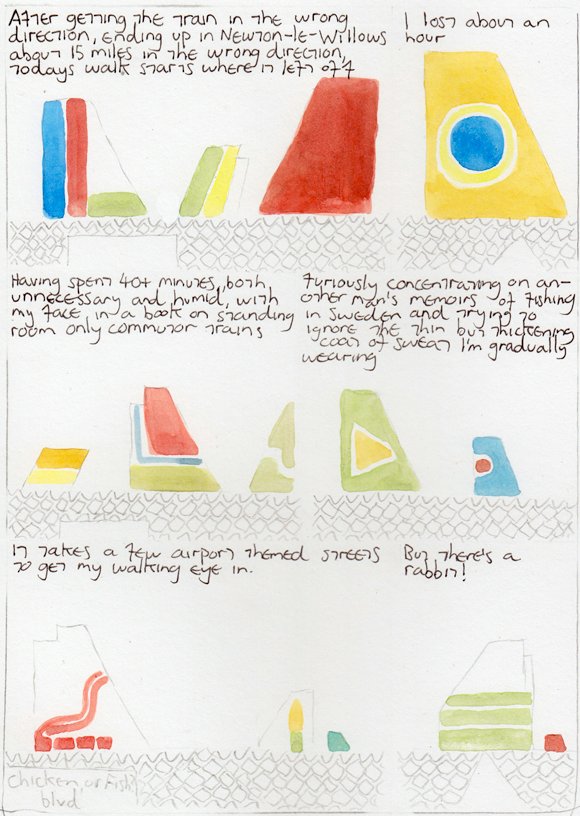 After getting the train in the wrong
direction, ending up in Newton-le-Willows
about 15 miles in the wrong direction,
todays walk starts where it left off
I lost about an
hour
Having spent 40+ minutes, both
unnecessary and humid, with
my face in a book on standing
room only commutor trains
Furiously concentrating on an-
other man's memoirs of fishing
in Sweden and trying to
ignore the thin but thickening
coat of sweat I'm gradually
wearing
It takes a few airport themed streets
to get my walking eye in.
But there's a
rabbit!
Chicken or Fish
blvd